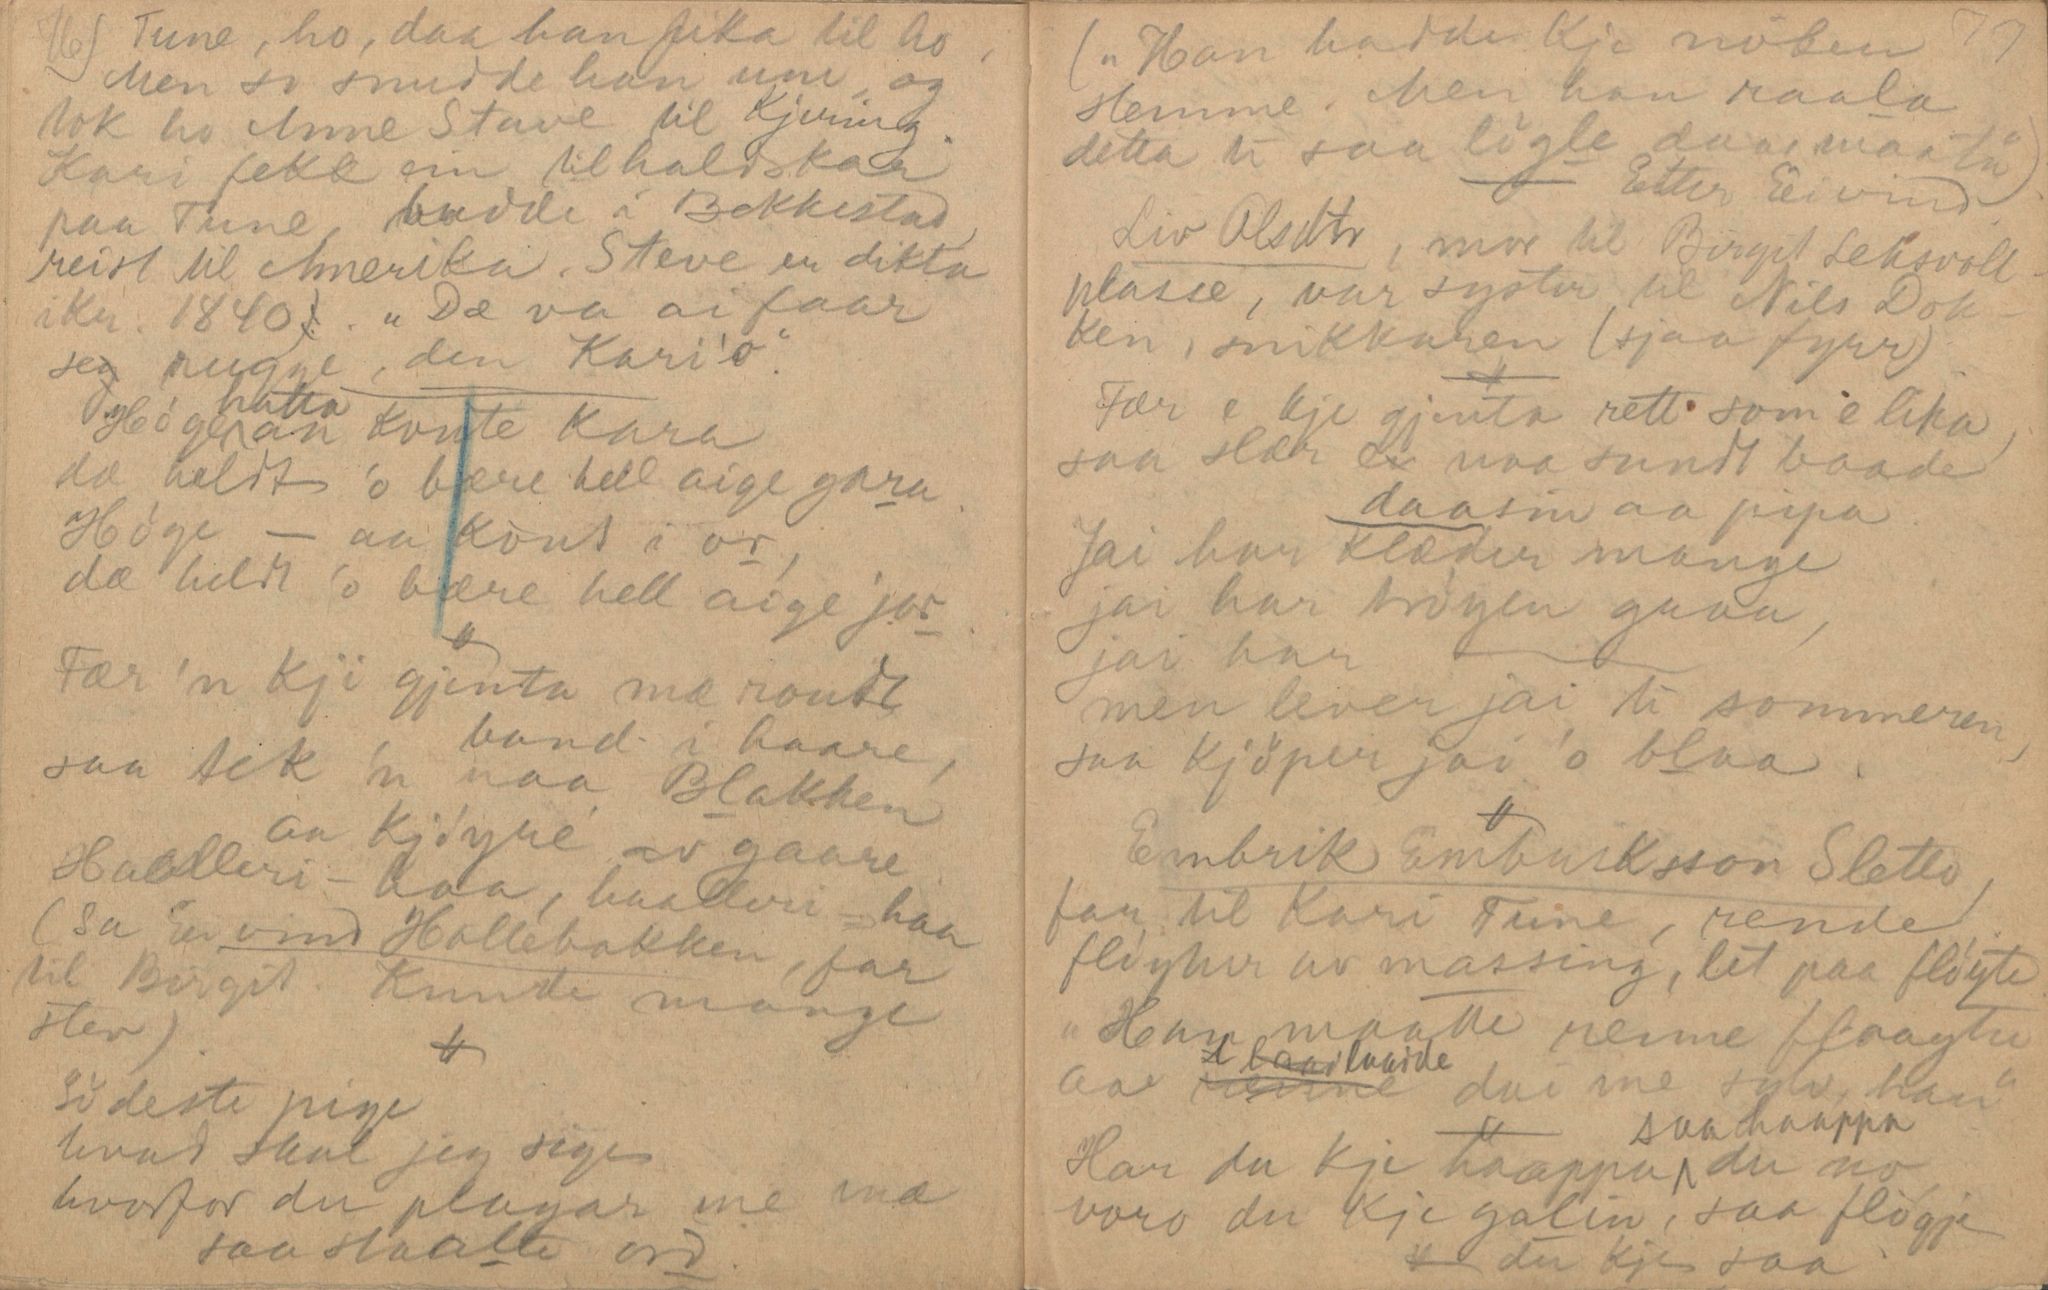 76) Tune, ho, daa han fika til ho,
Men so snudde han um, og
tok ho Anne Stave til Kjering.
Kari fekk ein tilhaldskar
paa Tune, budde i Bekkestad,
reist til Amerika. Steve er dikta
ikr. 1840). "Dæ va ai faar
seg rugge, den Kari'o".
Høge hatta an konte Kara
dæ heldt 'o bære hell aige gara.
Høge — aa kont i or,
dæ heldt 'o bære hell aige jor.
Fær 'n kji gjenta mæ roudt
band i haare,
saa tek 'n naa Blakken
aa kjøyre or gaare.
Haalleri-haa, haalleri-haa
(Sa Eivind Hallebakken, far
til Birgit. Kunde mange
stev).
Sødeste pige
hvad skal jeg sige
hvorfor du plagar me mæ
saa slaatte ord.
77
("Han hadde kje nøken
stemme. Men han raala
detta ti saa løgle daamaata")
Etter Eivind.
Liv Olsdtr, mor til Birgit Seksvoll-
plasse, var syster til Nils Dok-
ken, snikkaren (sjaa fyrr).
Fær e kje gjenta rett som e lika,
saa slær e naa sundt baade
daasin aa pipa.
Jai har klæder mange
jai har trøyen graa,
jai har
men lever jai ti sommeren,
saa kjøper jai 'o blaa.
Embrik Embriksson Sletto,
far til Kari Tune, rende
fløyter av massing, let paa fløyte.
"Han maatte renne fløayter
aa dai me sylv, han"
Har du kje haappa, saa haappa du no
voro du kje galin, saa fløgje
du kje saa.